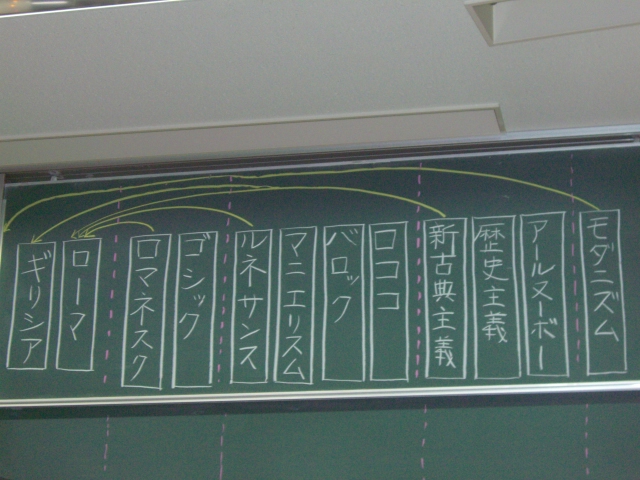 ギリシア
ローマ
ロマネスク
ゴシック
ルネサンス
マニエリスム
バロック
ロココ
新古典主義
歴史主義
アールヌーボー
モダニズム